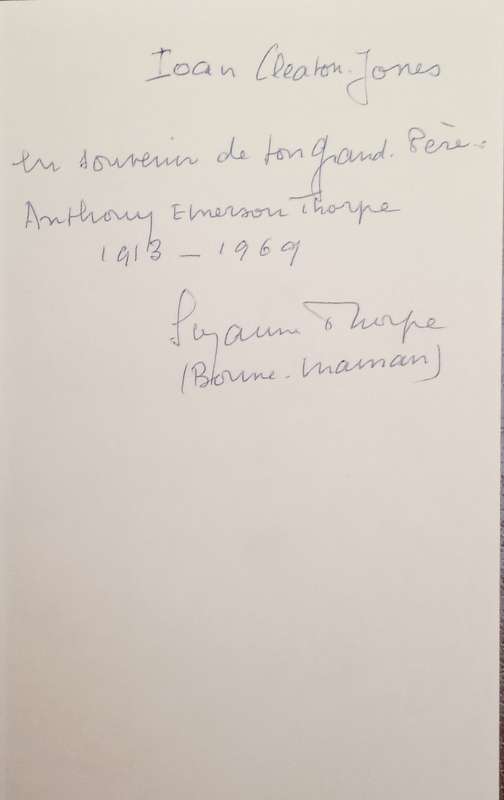 Ioan Cleaton-Jones
en souvenir de ton grand-Père-
Anthony Emerson Thorpe
1913 – 1969
Suzanne Thorpe
(Bonne-Maman)